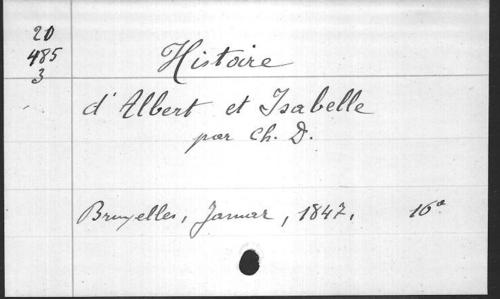 20
485
3
Histoire
d'Albert et Isabelle
par Ch. D.
Bruxelles, Jamar, 1847. 16°